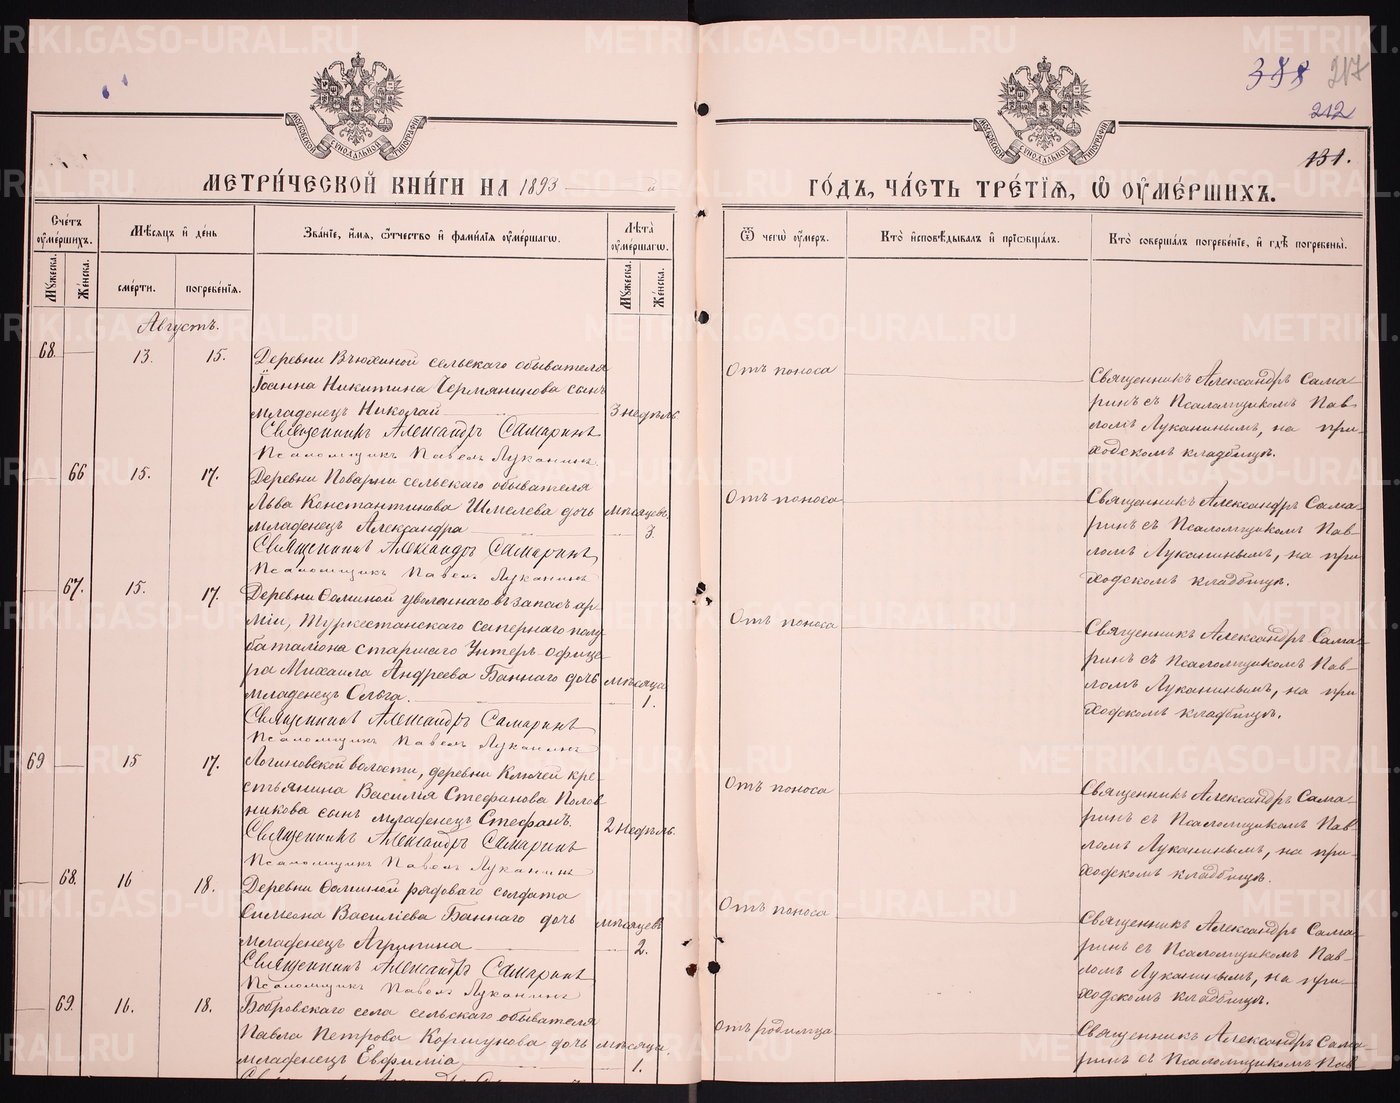 388 217
212
131.
МЕТРИ́ЧЕСКОЙ КНИ́ГИ НА 1893 й
ГО́ДЪ, ЧА́СТЬ ТРЕ́ТІѦ, Ѡ҆ ОУ҆МЕ́РШИХЪ.
Сче́тъ оу҆ме́ршихъ.
Мѣ́сѧцъ и҆ де́нь
Зва́ніе, и҆́мѧ, ѻ҆́тчество и҆ фами́ліѧ оу҆ме́ршагѡ.
Лѣ́та оу҆ме́ршагѡ.
Ѿ чегѡ̀ оу҆́меръ.
Кто̀ и҆сповѣ́дывалъ и҆ прїѡбща́лъ.
Кто̀ соверша́лъ погребе́ніе, и҆ гдѣ̀ погребены̀.
Мꙋ́жеска.
Же́нска.
сме́рти.
погребе́нїѧ.
Мꙋ́жеска.
Же́нска.
Августъ.
68. 13. 15. Деревни Вьюхиной сельскаго обывателя
Іоанна Никитина Чермянинова сынъ
младенецъ Николай 3 недѣль
Священникъ Александръ Самаринъ
Псаломщикъ Павелъ Луканинъ.
Отъ поноса
Священникъ Александръ Сама-
ринъ съ Псаломщикомъ Пав-
ломъ Луканинымъ, на при-
ходскомъ кладбищѣ.
66 15. 17. Деревни Поварни сельскаго обывателя
Льва Константинова Шмелева дочь мѣсяцевъ
младенецъ Александра 3.
Священникъ Александръ Самаринъ
Псаломщикъ Павелъ Луканинъ
Отъ поноса
Священникъ Александръ Сама-
ринъ съ Псаломщикомъ Пав-
ломъ Луканинымъ, на при-
ходскомъ кладбищѣ.
67. 15. 17. Деревни Фоминой уволеннаго въ запасъ ар-
міи, Туркестанскаго сапернаго полу-
баталіона старшаго Унтеръ-офице-
ра Михаила Андреева Баннаго дочь мѣсяца
младенецъ Ольга. 1.
Священникъ Александръ Самаринъ
Псаломщикъ Павелъ Луканинъ
Отъ поноса
Священникъ Александръ Сама-
ринъ съ Псаломщикомъ Пав-
ломъ Луканинымъ, на при-
ходскомъ кладбищѣ.
69 15 17. Логиновской волости, деревни Ключей кре-
стьянина Василія Стефанова Полов-
никова сынъ младенецъ Стефанъ. 2 недѣль.
Священникъ Александръ Самаринъ
Псаломщикъ Павелъ Луканинъ
Отъ поноса
Священникъ Александръ Сама-
ринъ съ Псаломщикомъ Пав-
ломъ Луканинымъ, на при-
ходскомъ кладбищѣ.
68. 16 18. Деревни Фоминой рядоваго солдата
Симеона Василіева Баннаго дочь мѣсяцевъ
младенецъ Агрипина 2.
Священникъ Александръ Самаринъ
Псаломщикъ Павелъ Луканинъ
Отъ поноса
Священникъ Александръ Сама-
ринъ съ Псаломщикомъ Пав-
ломъ Луканинымъ, на при-
ходскомъ кладбищѣ.
69. 16. 18. Бобровскаго села сельскаго обывателя
Павла Петрова Коршунова дочь мѣсяца.
младенецъ Евфимія 1.
Отъ родимца
Священникъ Александръ Сама-
ринъ съ Псаломщикомъ Пав-
METRIKI.GASO-URAL.RU